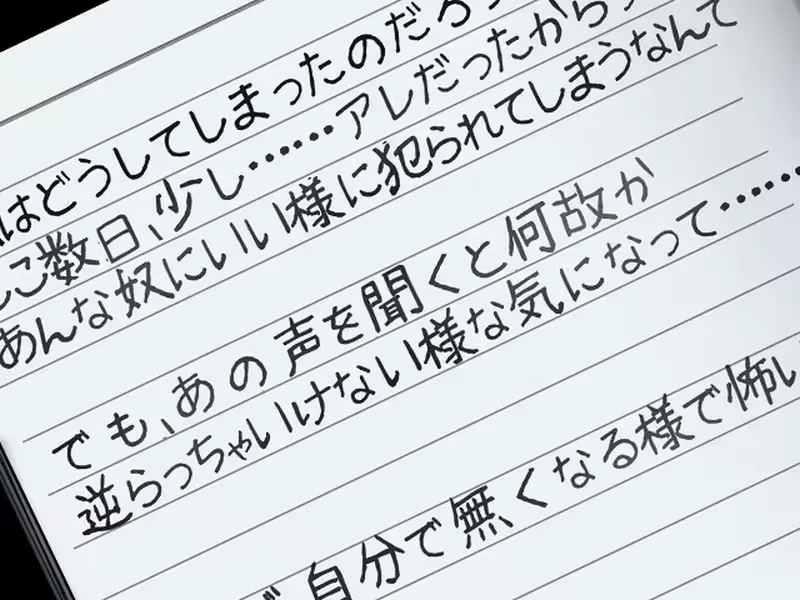 はどうしてしまったのだろ
こ数日、少し……アレだったから
あんな奴にいい様に犯られてしまうなんて
でも、あの声を聞くと何故か
逆らっちゃいけない様な気になって……
自分で無くなる様で怖い